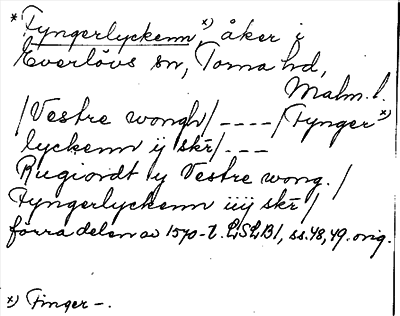 *Fyngerlyckenn x), åker i
Everlövs sn, Torna hd,
Malm. l.
/Vestre wongh/ ---- /Fynger x)
lyckenn ij skr/ ---
Rugiordt y Vestre wong. /
Fyngerlyckenn iiij skr /
förra delen av 1570-t. LSLB1, ss. 48, 49. orig.
x) Finger -.